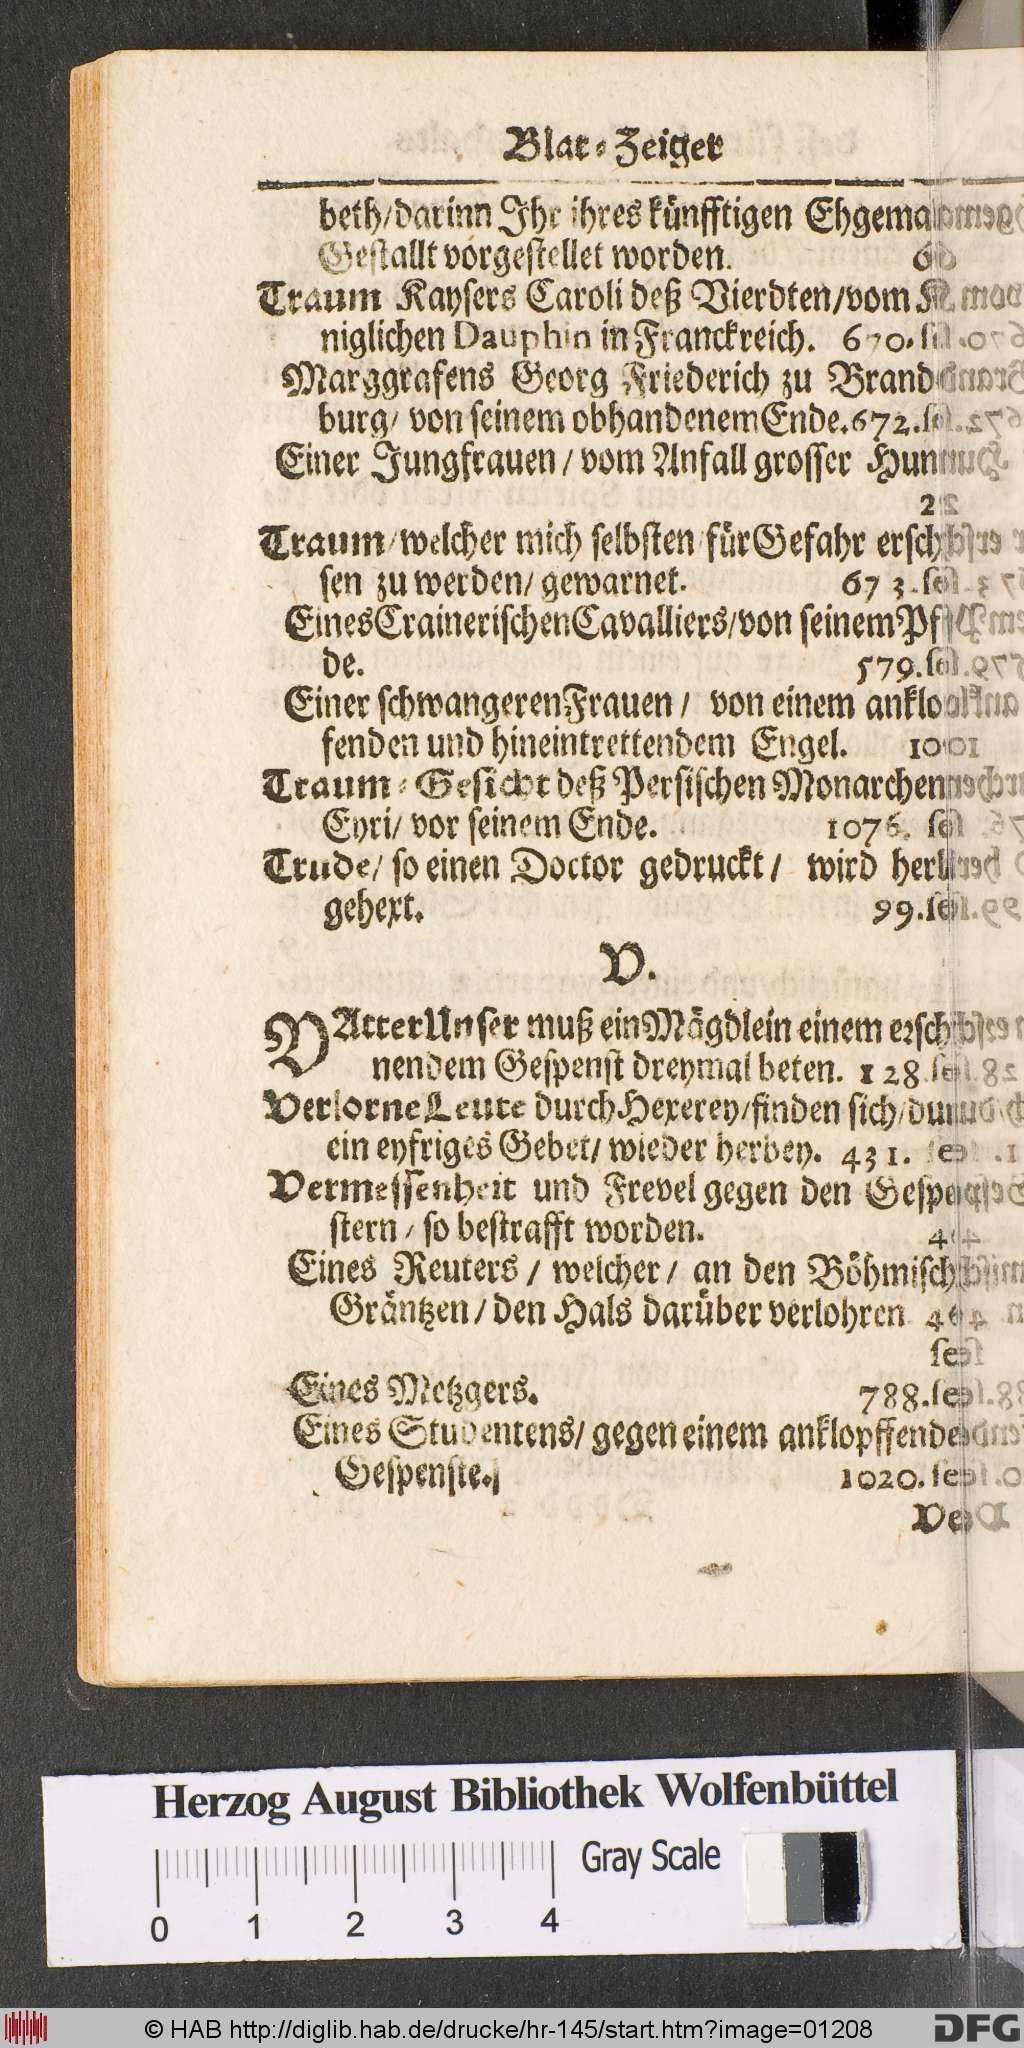 Blat-Zeiger
beth/darinn Ihr ihres künfftigen Ehgema
Gestallt vorgestellet worden.
Traum Kaysers Caroli deß Vierdten/vom K
niglichen Dauphin in Franckreich. 670.
Marggrafens Georg Friederich zu Brand
burg/ von seinem obhandenem Ende. 672.
Einer Jungfrauen/ vom Anfall grosser Hun
22
Traum/welcher mich selbsten für Gefahr ersch
sen zu werden/ gewarnet. 673.
Eines Crainerischen Cavalliers/von seinem Pf
de. 579.
Einer schwangeren Frauen/ von einem anklo
fenden und hineintrettendem Engel. 1001
Traum-Gesicht deß Persischen Monarchen
Cyri/ vor seinem Ende. 1076.
Trude/ so einen Doctor gedruckt/ wird her
gehext. 99.
V.
VAtter Unser muß ein Mägdlein einem ersch
nendem Gespenst dreymal beten. 128.
Verlorne Leute durch Hexerey/finden sich/du
ein eyfriges Gebet/ wieder herbey. 431.
Vermessenheit und Frevel gegen den Gespe
stern/ so bestrafft worden.
Eines Reuters/ welcher/ an den Böhmisch
Gräntzen/ den Hals darüber verlohren
Eines Metzgers. 788.
Eines Studentens/ gegen einem anklopffende
Gespenste. 1020.
Ve
Herzog August Bibliothek Wolfenbüttel
Gray Scale
0 1 2 3 4
© HAB http://diglib.hab.de/drucke/hr-145/start.htm?image=01208
DFG